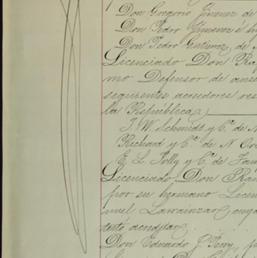 Don Gregorio Jimenez de
Don Pedro Jimenez é hi
Don Pedro Gutierrez, de
Licenciado Don Ra
mo Defensor de
seguientes acredores res
la República,
J. W. Schmidt y Cª de N
Richard y Cª de N. Or
E. L. Polly y Cª de
Licenciado Don Ra
por su hermano Licen
nuel Larrainzar
Don Eduardo J. Perry, p